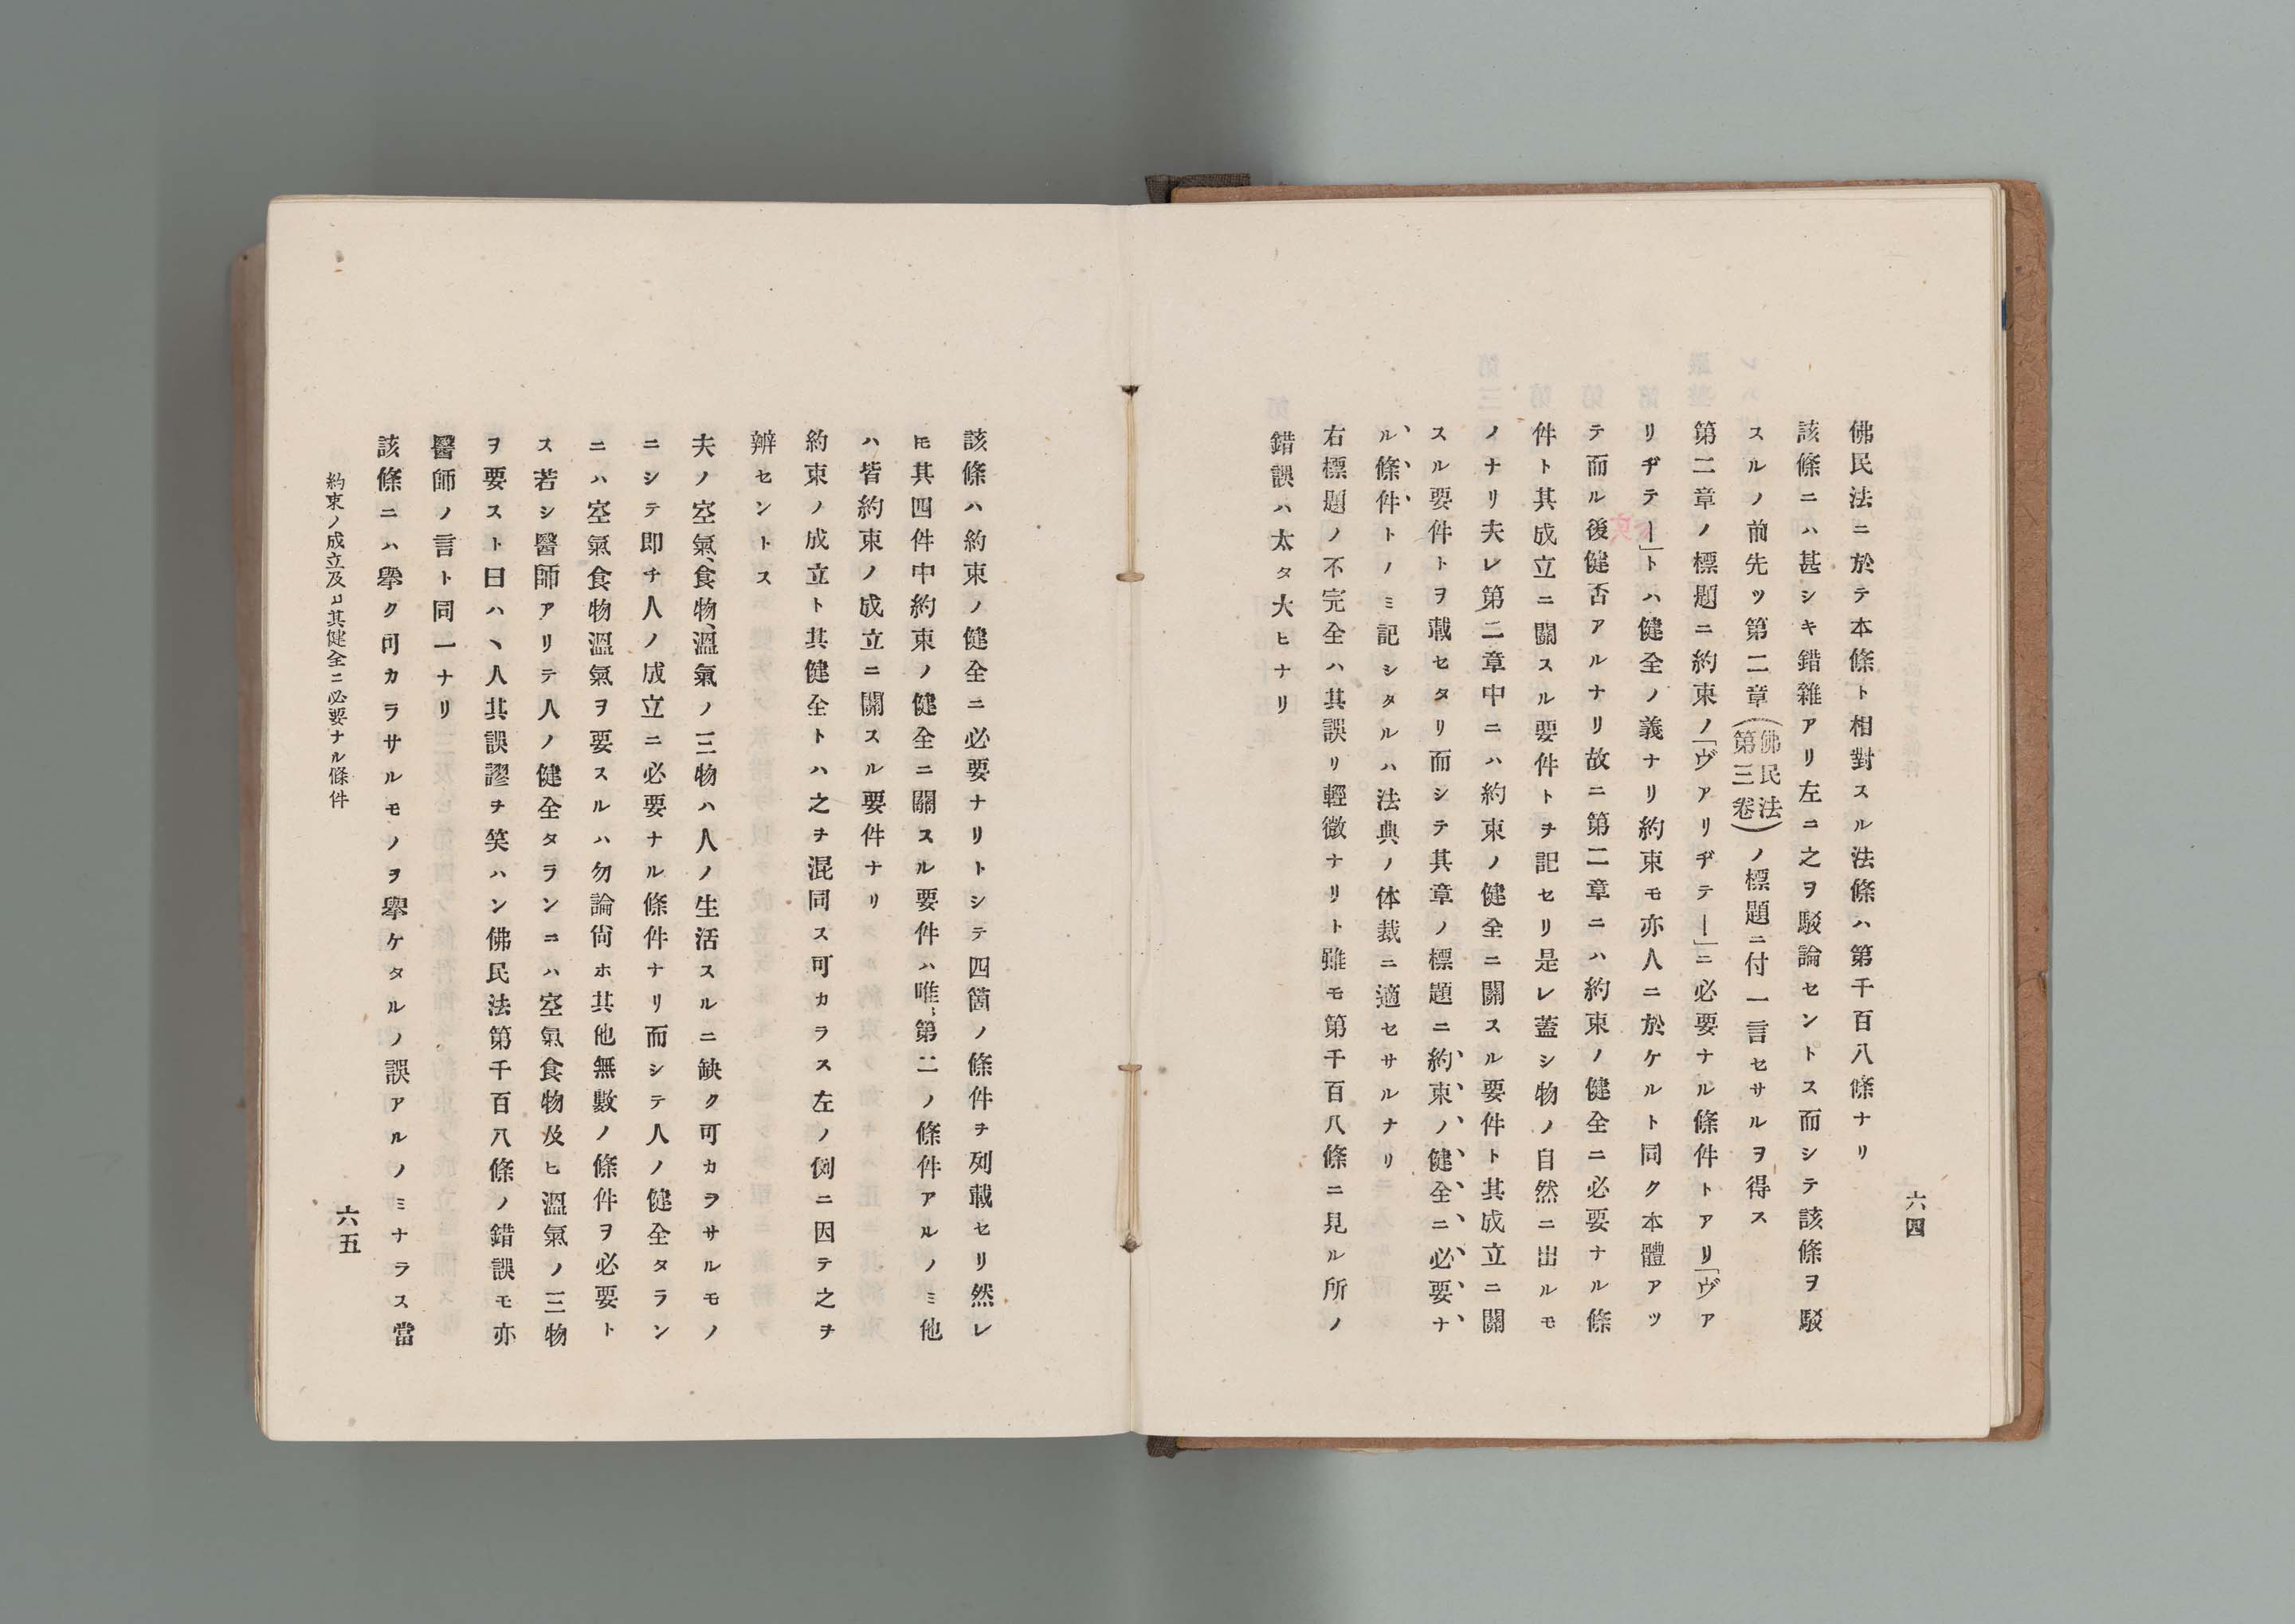 六四
佛民法ニ於テ本條ト相對スル法條ハ第千百八條ナリ
該條ニハ甚シキ錯雜アリ左ニ之ヲ駁論セントス而シテ該條ヲ駁
スルノ前先ツ第二章(佛民法第三卷)ノ標題ニ付一言セサルヲ得ス
第二章ノ標題ニ約束ノ「ヴアリヂテー」ニ必要ナル條件トアリ「ヴア
リヂテー」トハ健全ノ義ナリ約束モ亦人ニ於ケルト同ク本體アツ
テ而ル後健否アルナリ故ニ第二章ニハ約束ノ健全ニ必要ナル條
件ト其成立ニ關スル要件トヲ記セリ是レ蓋シ物ノ自然ニ出ルモ
ノナリ夫レ第二章中ニハ約束ノ健全ニ關スル要件ト其成立ニ關
スル要件トヲ載セタリ而シテ其章ノ標題ニ約束ノ健全ニ必要ナ
ル條件トノミ記シタルハ法典ノ体裁ニ適セサルナリ
右標題ノ不完全ハ其誤リ輕微ナリト雖モ第千百八條ニ見ル所ノ
錯誤ハ太タ大ヒナリ
該條ハ約束ノ健全ニ必要ナリトシテ四箇ノ條件ヲ列載セリ然レ
𪜈其四件中約束ノ健全ニ關スル要件ハ唯〻第二ノ條件アルノミ他
ハ皆約束ノ成立ニ關スル要件ナリ
約束ノ成立ト其健全トハ之ヲ混同ス可カラス左ノ例ニ因テ之ヲ
辨セントス
夫ノ空氣、食物、溫氣ノ三物ハ人ノ生活スルニ缺ク可カラサルモノ
ニシテ即チ人ノ成立ニ必要ナル條件ナリ而シテ人ノ健全タラン
ニハ空氣食物溫氣ヲ要スルハ勿論尙ホ其他無數ノ條件ヲ必要ト
ス若シ醫師アリテ人ノ健全タランニハ空氣食物及ヒ溫氣ノ三物
ヲ要スト曰ハヽ人其誤謬ヲ笑ハン佛民法第千百八條ノ錯誤モ亦
醫師ノ言ト同一ナリ
該條ニハ擧ク可カラサルモノヲ擧ケタルノ誤アルノミナラス當
約束ノ成立及ヒ其健全ニ必要ナル條件
六五